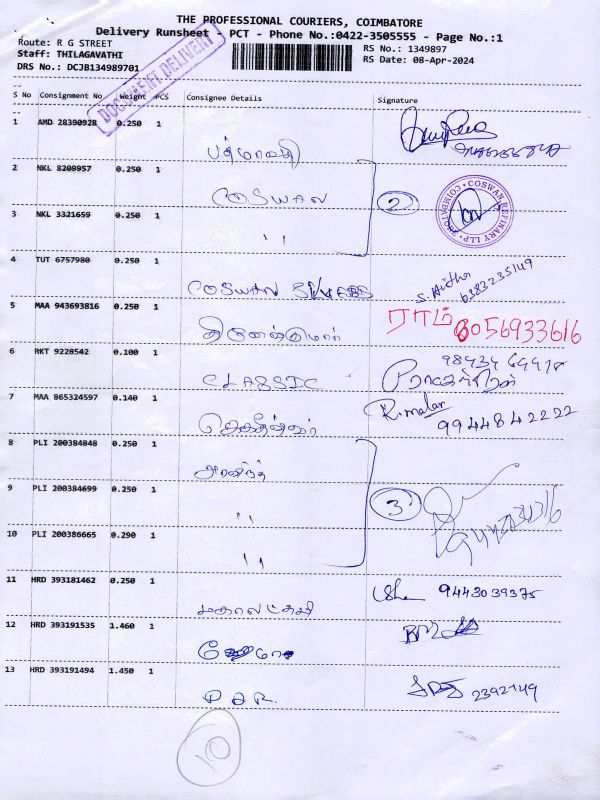 THE PROFESSIONAL COURIERS, COIMBATORE
Delivery Runsheet - PCT - Phone No.:0422-3505555 - Page No.:1
Route: R G STREET
Staff: THILAGAVATHI
DRS No.: DCJB134989701
RS No.: 1349897
RS Date: 08-Apr-2024
DOCUMENT DELIVERY
S No Consignment No Weight PCS Consignee Details Signature
1 AMD 28390928 0.250 1 பத்மாவதி
2 NKL 8209957 0.250 1 COSWAN 2
COSWAN REFINARY LLP COIMBATORE
3 NKL 3321659 0.250 1 ''
4 TUT 6757980 0.250 1 COSWAN
5 MAA 943693816 0.250 1 ராம் 8056933616
6 RKT 9228542 0.100 1 CLASSIC
7 MAA 865324597 0.140 1 R.malar 9944842222
8 PLI 200384848 0.250 1 அரவிந்த்
9 PLI 200384699 0.250 1 '' 3
10 PLI 200386665 0.290 1 ''
11 HRD 393181462 0.250 1 மகாலட்சுமி Usha 9443039375
12 HRD 393191535 1.460 1
13 HRD 393191494 1.450 1 2392149
10